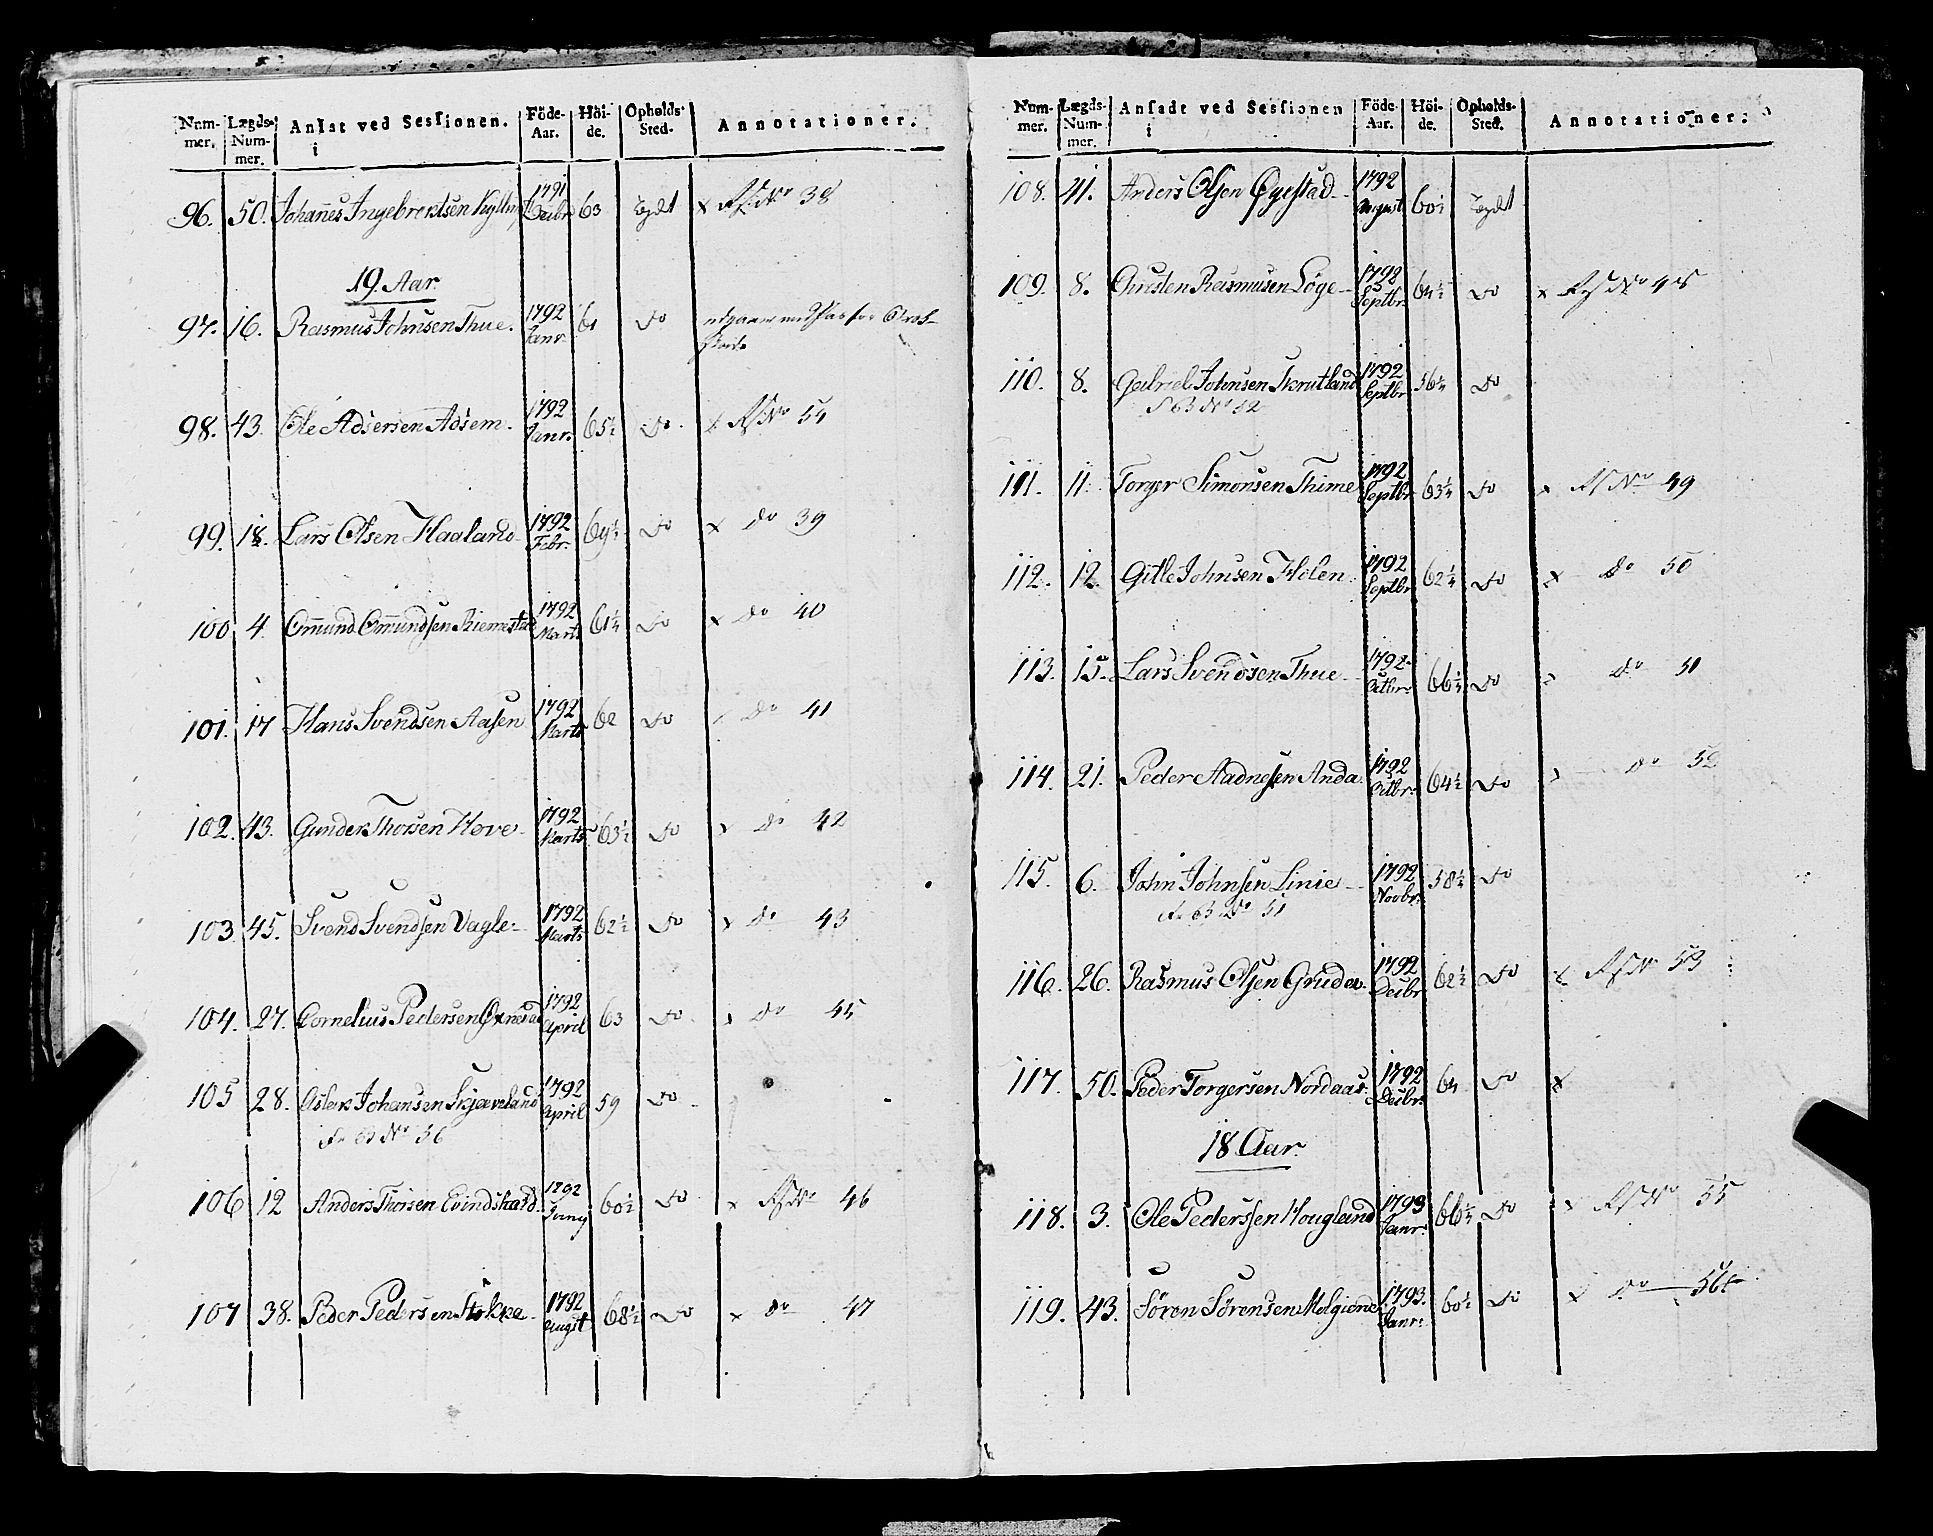 Num- Lægds- Ansat ved Sessionen. Föde- Höi- Opholds- Annotationer.
mer. Num- i Aar. de. Sted.
mer.
96. 50. Johañes Ingebrektsen 1791 Decbr 63 × No 38
19. Aar
97. 16. Rasmus Johnsen Thue. 1792 Janr. 61 Do
98. 43. Ole Adsersen Adsem. 1792 Janr. 65½ Do × No 54
99. 18. Lars Olsen Haaland 1792 Febr. Do × do 39
100 4. Om̃und Om̃undsen 1792 Marts 61¼ Do × do 40
101. 17 Hans Svendsen Aasen 1792 Marts 62 Do do 41
102. 43. Gunder Thorsen Hove 1792 Marts 63½ Do × do 42
103 45. Svend Svendsen Vagle 1792 Marts 62½ Do × do 43
104. 27. Cornelius Pedersen 1792 April 63 Do × do 45
105 28. Aslak Johansen Skjæveland 1792 April 59 Do
No 36
106 12 Anders Thorsen Evindshaard 1792 Juny 60½ Do × No 46
107 38. Peder Pedersen Stokke 1792 Augst 68½ Do × do 47
Num- Lægds- Ansadt ved Sessionen Föde- Höi- Opholds- Annotationer.
mer. Num- i Aar. de. Sted.
mer.
108. 41. Anders Olsen Øgestad 1792 August 60½
109. 8. Christen Rasmusen Løge 1792 Septbr. 64½ Do × No 48
110. 8. Gabriel Johnsen Skrutland 1792 Septbr 56¼ Do
111. 11. Torger Simonsen Thime 1792 Septbr 63¼ Do × No 49
112. 12 Gitle Johnsen Holen 1792 Septbr 62¼ Do × do 50
113. 15. Lars Svendsen Thue 1792 Octbr. Do do 51
114. 21. Peder Aadnesen Anda 1792 Octbr. 64½ Do do 52
115. 6. John Johnsen Linie 1792 Novbr. 58¼ Do
No 51
116. 26. Rasmus Olsen Gruda 1792 Decbr 62½ Do × No 53
117. 50. Peder Torgersen Nordaas 1792 Decbr. 64 Do ×
18 Aar.
118. 3. Ole Pederssen Hougland 1793 Janr. Do × No 55
119. 43. Søren Sørensen 1793. Janr. 60½ Do × do 56